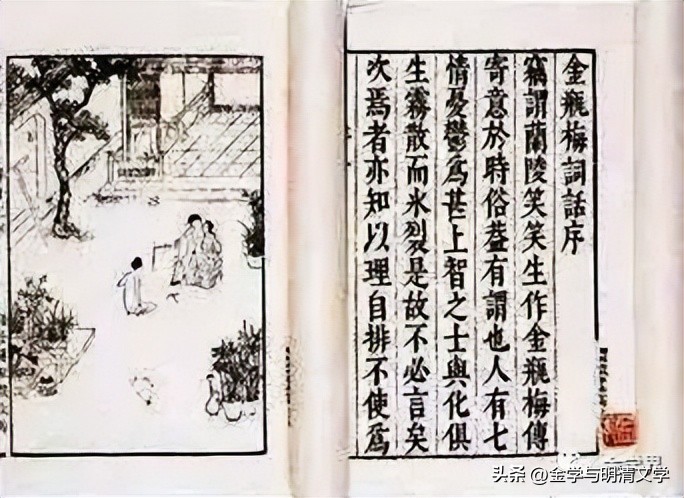 金瓶梅詞話序
竊謂蘭陵笑笑生作金瓶梅傳
寄意於時俗葢有謂也人有七
情憂鬱爲甚上智之士與化俱
生霧散而氷裂是故不必言矣
次焉者亦知以理自排不使爲
头条 @金学与明清文学